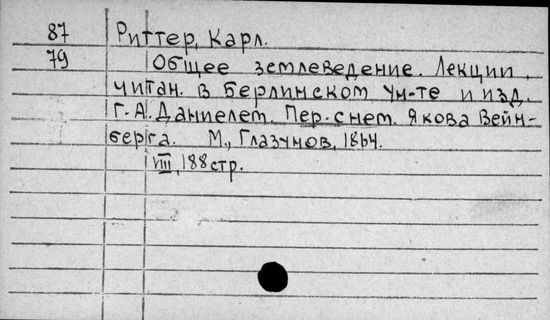 87 Риттер, Карл.
79 Общее землеведение. Лекции,
читан. в Берлинском Ун-те и изд.
Г. А. Даниелем. Пер. с нем. Якова Вейн-
берга. М., Глазунов, 1864.
VIII, 188 стр.